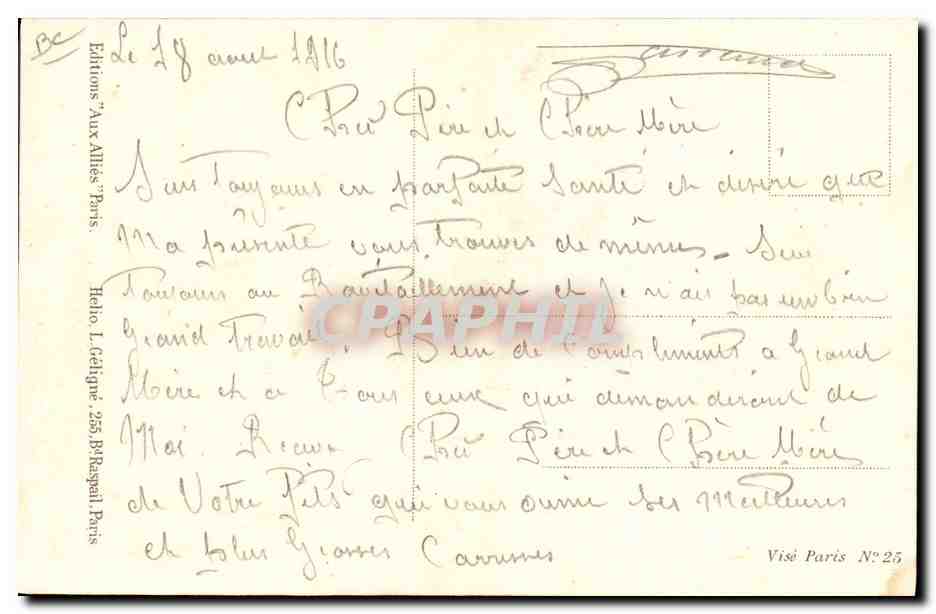 BC
Le 18 aout 1916
Cher Père et Chère Mère
Suis toujours en parfaite Santé et désire que
Ma présente vous trouves de mêmes. Suis
Toujours au Ravitaillement et je n'ais pas un bien
Grand Travail. Bien de Compliments a Grand
Mère et a Tous ceux qui demanderont de
Moi. Recever Cher Père et Chère Mère
de Votre fils qui vous aime ses meilleures
et plus Grosses Carresses
Editions "Aux Alliés" Paris.
Helio. L. Géligné, 255, Bd Raspail, Paris
CPAPHIL
Visé Paris No 25